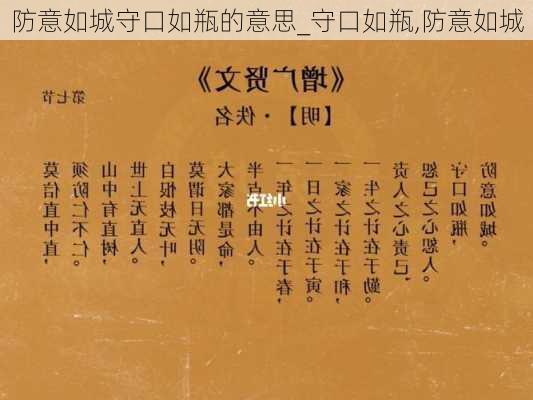 防意如城守口如瓶的意思_守口如瓶,防意如城
《增广贤文》
【明】·佚名
第七节
莫信直中直，
须防仁不仁。
山中有直树，
世上无直人。
自恨枝无叶，
莫谓日无阴。
大家都是命，
半点不由人。
一年之计在于春，
一日之计在于寅。
一家之计在于和，
一生之计在于勤。
责人之心责己，
恕己之心恕人。
守口如瓶，
防意如城。